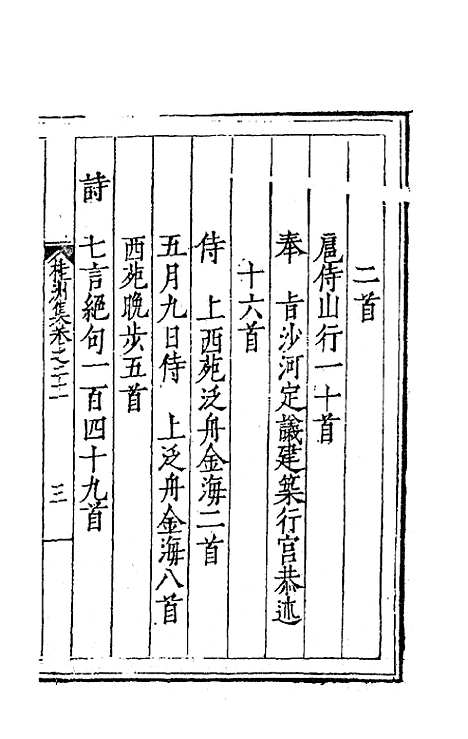 二首
扈侍山行一十首
奉　旨沙河定議建築行宫恭述
十六首
侍　上西苑泛舟金海二首
五月九日侍　上泛舟金海八首
西苑晚步五首
詩　七言絕句一百四十九首
桂洲集卷之二十　三